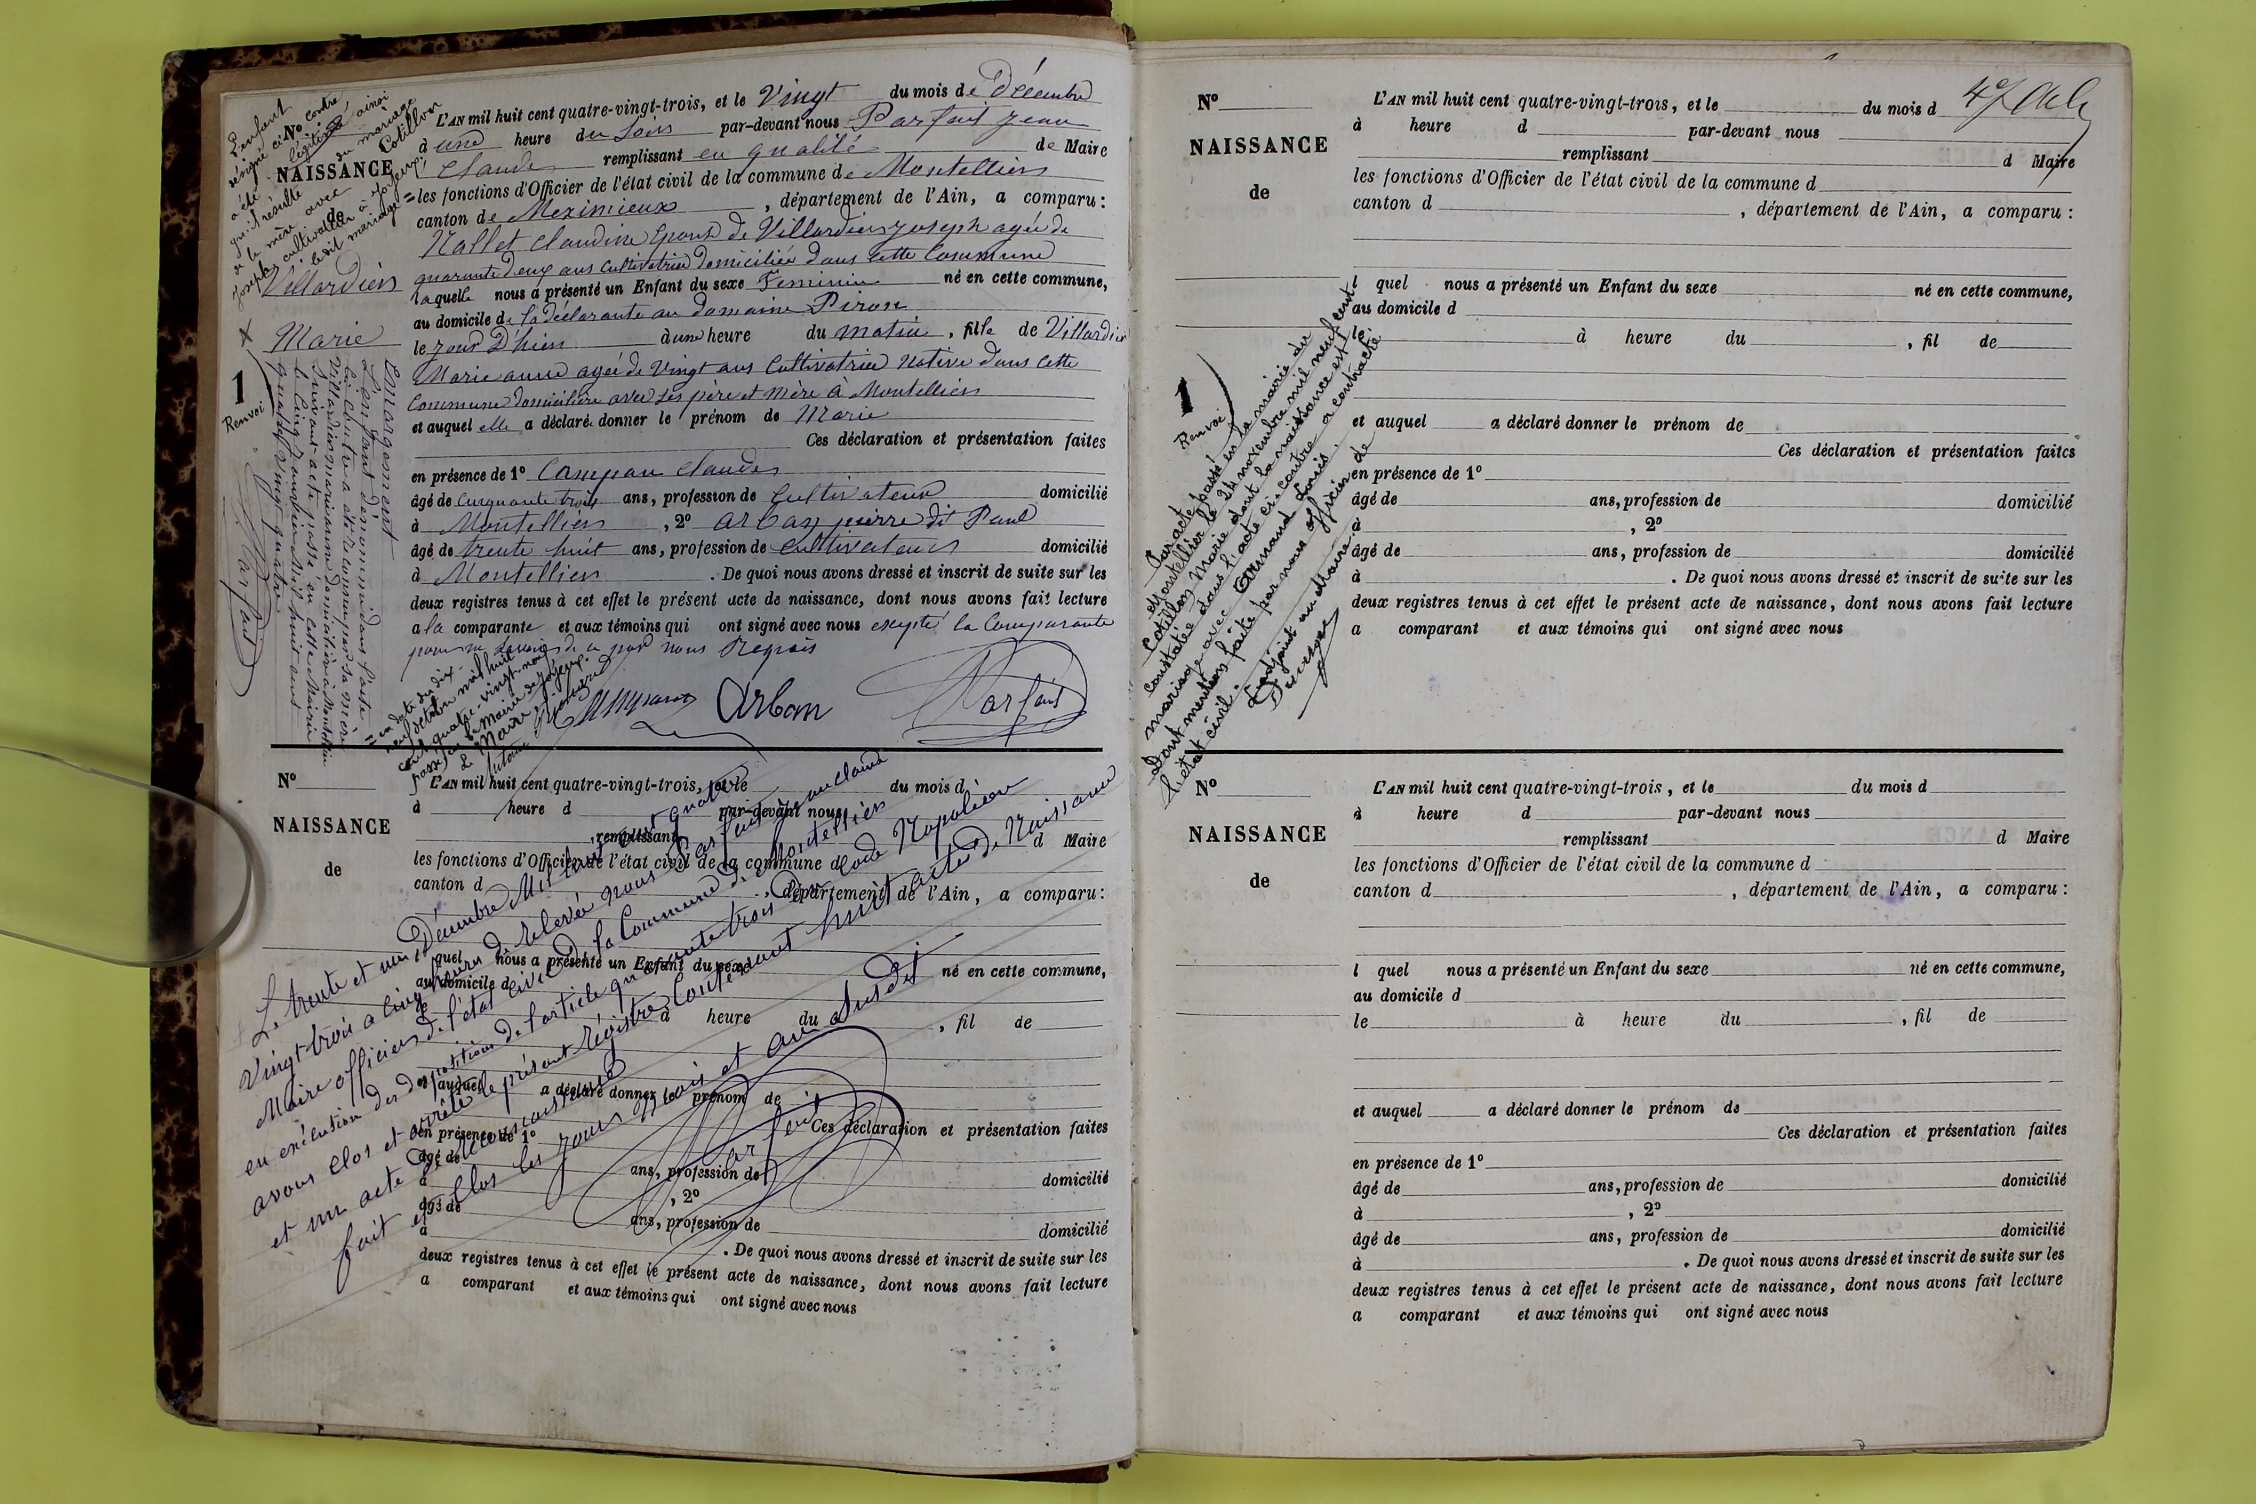 L'AN mil huit cent quatre-vingt-trois, et le Vingt du mois de Décembre
à une heure du Soir par-devant nous Parfait Jean
Claude remplissant en qualité de Maire
les fonctions d'Officier de l'état civil de la commune de Montellier
canton de Meximieux, département de l'Ain, a comparu:
Nallet Claudine Epouse de Villardier Joseph agée de
quarante deux ans Cultivatrice domiciliée dans cette Commune
laquelle nous a présenté un Enfant du sexe Feminin né en cette commune,
au domicile de la déclarante au domaine Piron
le jour D'hier à une heure du matin, fille de Villardier
Marie anne agée de Vingt ans Cultivatrice Native dans cette
Commune domiciliée avec ses père et mère à Montellier
et auquel elle a déclaré donner le prénom de Marie
Ces déclaration et présentation faites
en présence de 1° Campan Claude
âgé de Cinquante trois ans, profession de Cultivateur domicilié
à Montellier, 2° Arban pierre dit Paul
âgé de trente huit ans, profession de Cultivateur domicilié
à Montellier. De quoi nous avons dressé et inscrit de suite sur les
deux registres tenus à cet effet le présent acte de naissance, dont nous avons fait lecture
a la comparante et aux témoins qui ont signé avec nous excepté la Comparante
pour ne savoir de ce par nous Requis
Campan Arban Parfait
L'enfant
désigné ci-contre
a été légitimé ainsi
qu'il résulte du mariage
de la mère avec Cotillon
Joseph cultivateur à Joyeux
ledit mariage =
= en date du dix-
neuf octobre mil huit
cent quatre-vingt-neuf
passé en la Mairie de Joyeux.
Le Maire,
N°
NAISSANCE
de
Villardier
Marie
1
Renvoi
Emargement
L'enfant dénommé dans l'acte
ci-contre a été reconnu par sa mère
Villardier marie anne domiciliée à Montellier
suivant acte passé en cette Mairie
le cinq Janvier Mil huit cent
quatre vingt quatre
Parfait
N°
NAISSANCE
de
L'AN mil huit cent quatre-vingt-trois, et le du mois d
à heure d par-devant nous
remplissant d Maire
les fonctions d'Officier de l'état civil de la commune d
canton d , département de l'Ain, a comparu:
l quel nous a présenté un Enfant du sexe né en cette commune,
au domicile d
le à heure du , fil de
et auquel a déclaré donner le prénom de
Ces déclaration et présentation faites
en présence de 1°
âgé de ans, profession de domicilié
à , 2°
âgé de ans, profession de domicilié
à . De quoi nous avons dressé et inscrit de suite sur les
deux registres tenus à cet effet le présent acte de naissance, dont nous avons fait lecture
a comparant et aux témoins qui ont signé avec nous
Le trente et un Décembre Mil huit cent quatre
Vingt trois a cinq heures de relevée nous Parfait Jean Claude
Maire officier de l'état civil de la Commune de Montellier
en exécution des dispositions de l'article quarante trois du Code Napoléon
avons Clos et arrêté le présent Régistre Contenant huit actes de Naissance
et un acte de Reconnaissance
fait et Clos les jour mois et an Susdit
Parfait
N°
NAISSANCE
de
L'AN mil huit cent quatre-vingt-trois, et le du mois d
à heure d par-devant nous
remplissant d Maire
les fonctions d'Officier de l'état civil de la commune d
canton d , département de l'Ain, a comparu:
l quel nous a présenté un Enfant du sexe né en cette commune,
au domicile d
le à heure du , fil de
et auquel a déclaré donner le prénom de
Ces déclaration et présentation faites
en présence de 1°
âgé de ans, profession de domicilié
à , 2°
âgé de ans, profession de domicilié
à . De quoi nous avons dressé et inscrit de suite sur les
deux registres tenus à cet effet le présent acte de naissance, dont nous avons fait lecture
a comparant et aux témoins qui ont signé avec nous
1
Renvoi
Par acte passé en la mairie du
Montellier le 24 novembre mil neuf cent
Cotillon Marie dont la naissance est
constatée dans l'acte ci-contre a contracté
mariage avec Armand Louis.
Dont mention faite par nous officier de
l'état civil.
L'adjoint au Maire
N°
NAISSANCE
de
L'AN mil huit cent quatre-vingt-trois, et le du mois d
à heure d par-devant nous
remplissant d Maire
les fonctions d'Officier de l'état civil de la commune d
canton d , département de l'Ain, a comparu:
l quel nous a présenté un Enfant du sexe né en cette commune,
au domicile d
le à heure du , fil de
et auquel a déclaré donner le prénom de
Ces déclaration et présentation faites
en présence de 1°
âgé de ans, profession de domicilié
à , 2°
âgé de ans, profession de domicilié
à . De quoi nous avons dressé et inscrit de suite sur les
deux registres tenus à cet effet le présent acte de naissance, dont nous avons fait lecture
a comparant et aux témoins qui ont signé avec nous